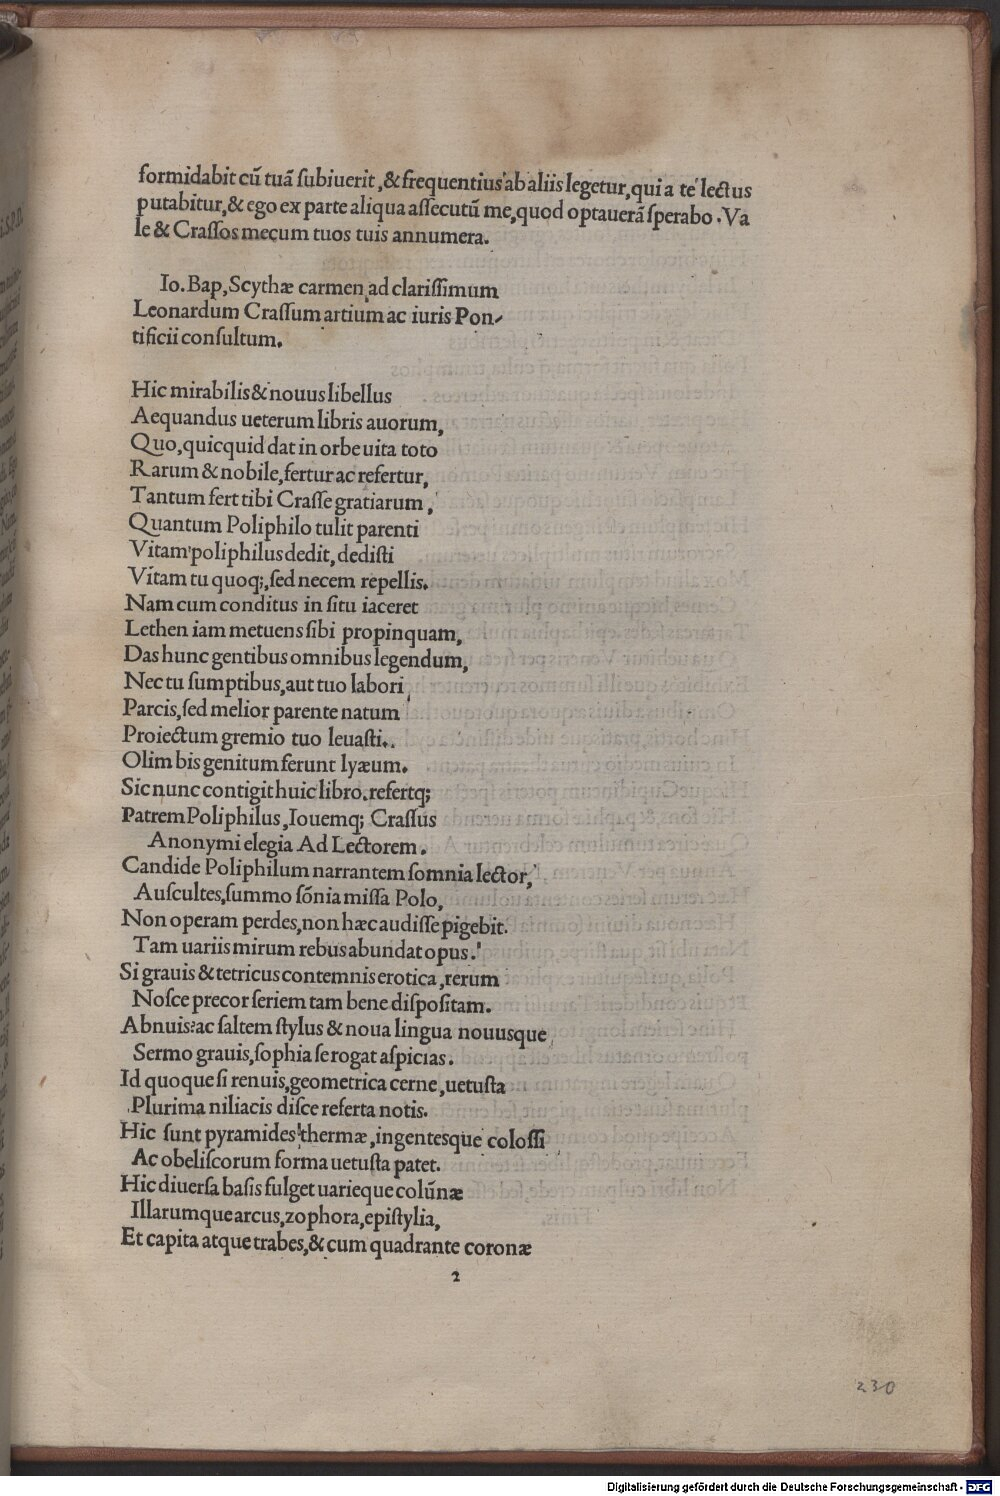 formidabit cũ tuã ſubiuerit, & frequentius ab aliis legetur, qui a te lectus
putabitur, & ego ex parte aliqua aſſecutũ me, quod optauerã ſperabo. Va
le & Craſſos mecum tuos tuis annumera.
Io. Bap, Scythæ carmen ad clariſſimum
Leonardum Craſſum artium ac iuris Pon-
tificii conſultum.
Hic mirabilis & nouus libellus
Aequandus ueterum libris auorum,
Quo, quicquid dat in orbe uita toto
Rarum & nobile, fertur ac refertur,
Tantum fert tibi Craſſe gratiarum,
Quantum Poliphilo tulit parenti
Vitam poliphilus dedit, dediſti
Vitam tu quoq;, ſed necem repellis.
Nam cum conditus in ſitu iaceret
Lethen iam metuens ſibi propinquam,
Das hunc gentibus omnibus legendum,
Nec tu ſumptibus, aut tuo labori
Parcis, ſed melior parente natum
Proiectum gremio tuo leuaſti..
Olim bis genitum ferunt lyæum.
Sic nunc contigit huic libro. refertq;
Patrem Poliphilus, Iouemq; Craſſus
Anonymi elegia Ad Lectorem.
Candide Poliphilum narrantem ſomnia lector,
Auſcultes, ſummo ſõnia miſſa Polo,
Non operam perdes, non hæc audiſſe pigebit.
Tam uariis mirum rebus abundat opus.
Si grauis & tetricus contemnis erotica, rerum
Noſce precor ſeriem tam bene diſpoſitam.
Abnuis? ac ſaltem ſtylus & noua lingua nouusque
Sermo grauis, ſophia ſe rogat aſpicias.
Id quoque ſi renuis, geometrica cerne, uetuſta
Plurima niliacis diſce referta notis.
Hic ſunt pyramides thermæ, ingentesque coloſſi
Ac obeliſcorum forma uetuſta patet.
Hic diuerſa baſis fulget uarieque colũnæ
Illarumque arcus, zophora, epiſtylia,
Et capita atque trabes, & cum quadrante coronæ
2
230
Digitalisierung gefördert durch die Deutsche Forschungsgemeinschaft - DFG